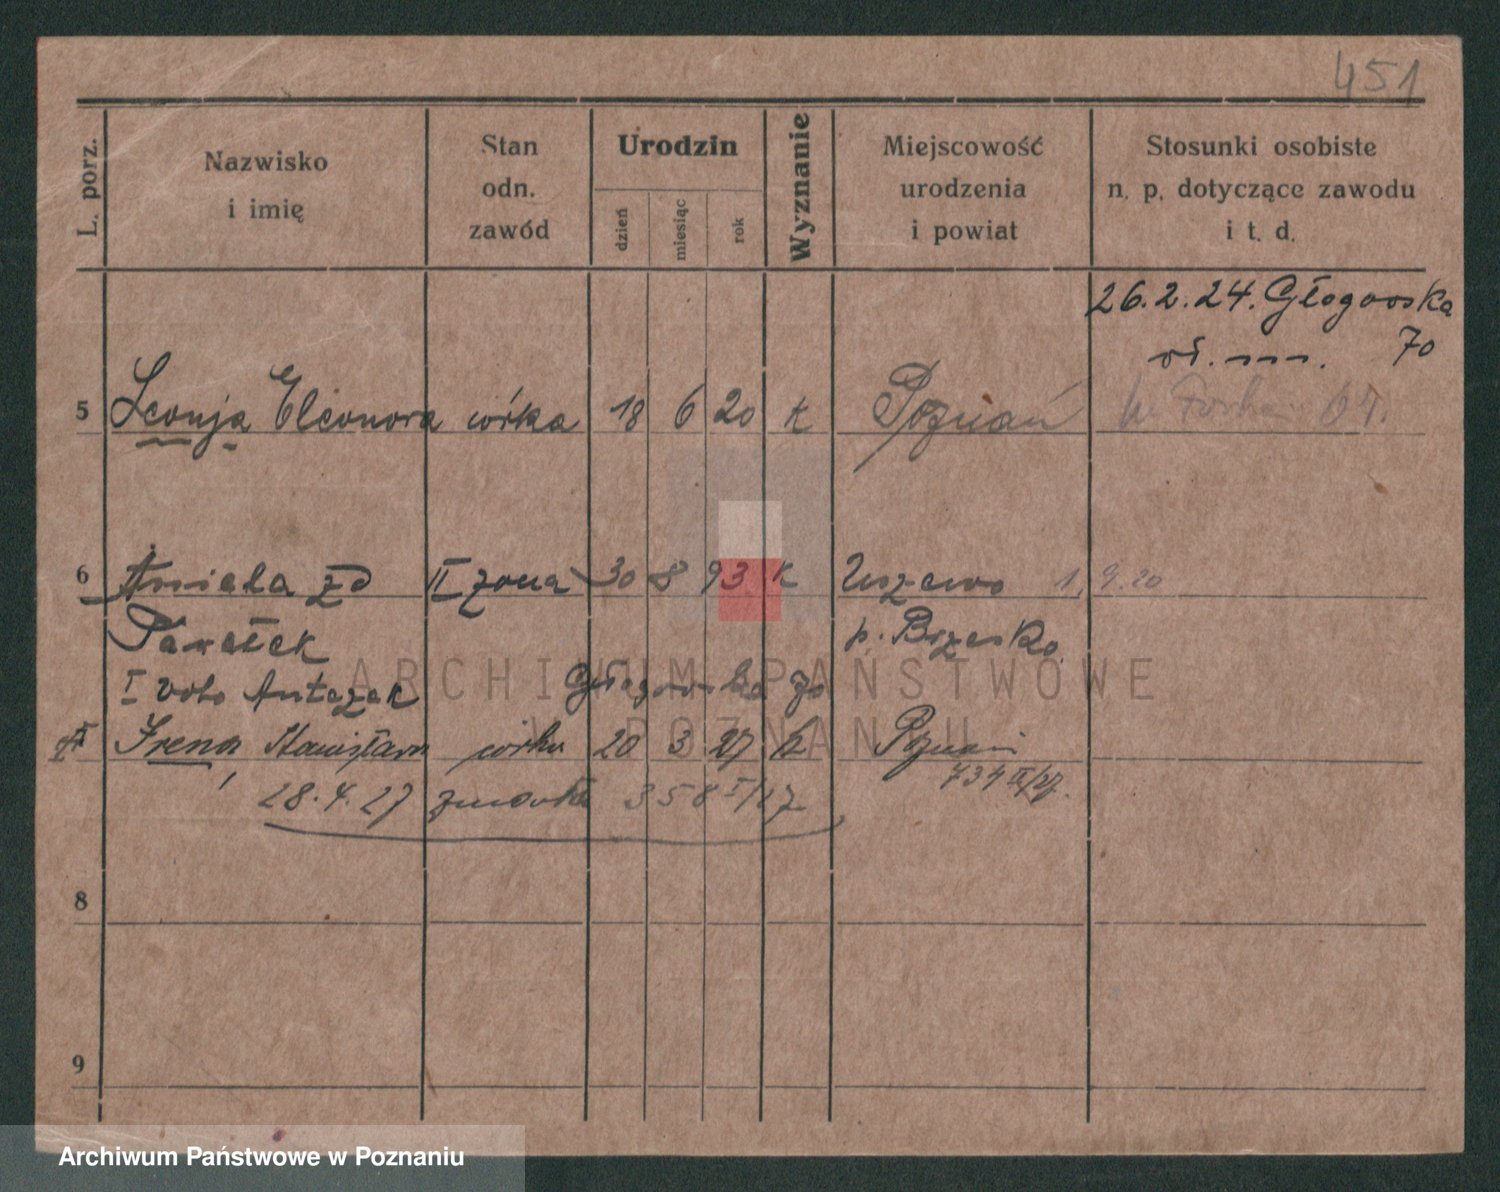 451
L. porz.
Nazwisko
i imię
Stan
odn.
zawód
Urodzin
dzień
miesiąc
rok
Wyznanie
Miejscowość
urodzenia
i powiat
Stosunki osobiste
n. p. dotyczące zawodu
i t. d.
26.2.24. Głogowska
70
5 Leonja Eleonora córka 18 6 20 k Poznań
6 Aniela zd II żona 30 8 93 k Uszewo 1. 9. 20
Pawełek p. Brzesko
I voto Antczak Głogowska 70
Irena Stanisława córka 20 3 27 k Poznań
734 II/27.
28.4.27 zmarła 358 I/27
8
9
ARCHIWUM PAŃSTWOWE
W POZNANIU
Archiwum Państwowe w Poznaniu